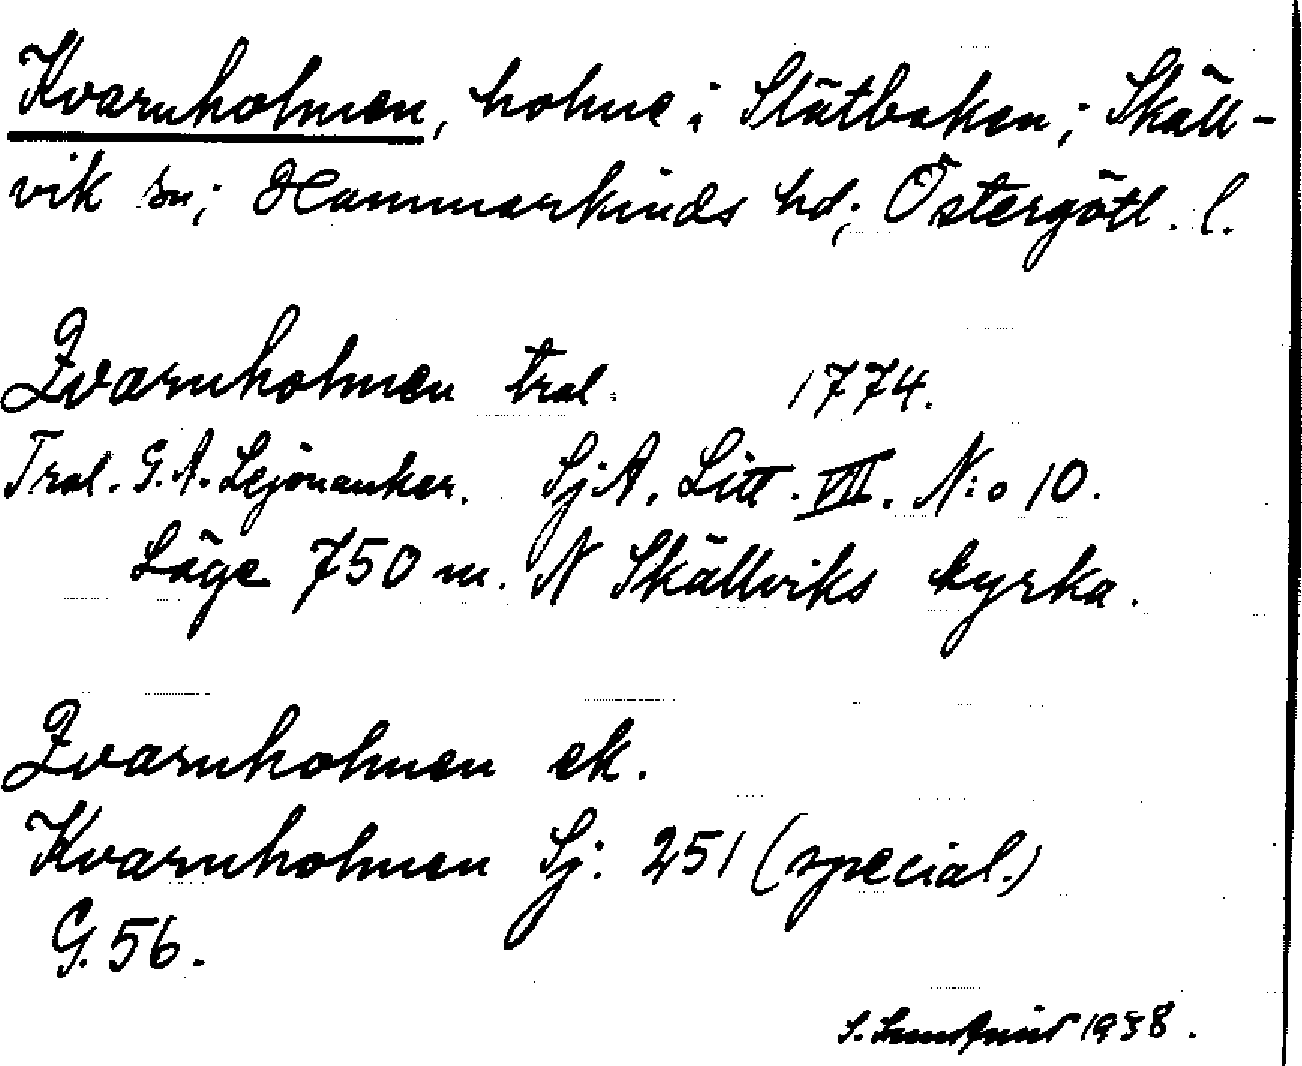 Kvarnholmen, holme i Slätbaken; Skäll-
vik sn; Hammarkinds hd; Östergötl. l.
Qvarnholmen tral. 1774.
Tral. G. A. Lejonanker. SjA, Litt. VII. N:o 10.
Läge 750 m. N Skällviks kyrka.
Qvarnholmen ek.
Kvarnholmen Sj: 251 (special.)
G. 56.
S. Lundqvist 1938.